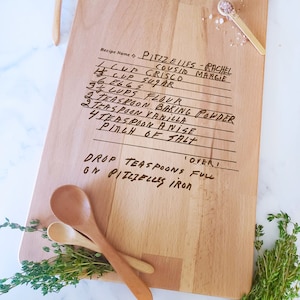 Recipe Name PITIZELLES - RACHEL
COUSIN MARGIE
1 CUP CRISCO
CUP SUGAR
6 EGGS
CUPS FLOUR
2 TEASPOON BAKING POWDER
2 TEASPOON VANILLA
4 TEASPOON ANISE
PINCH OF SALT
'OVER!
DROP TEASPOONS FULL
ON PITIZELLES IRON